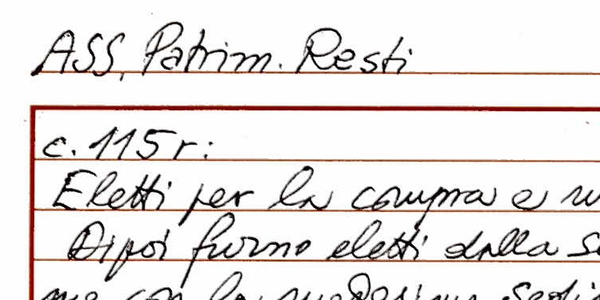 ASS, Patrim. Resti
c. 115r:
Eletti per la compra e
Dipoi furno eletti dalla
con la medesima